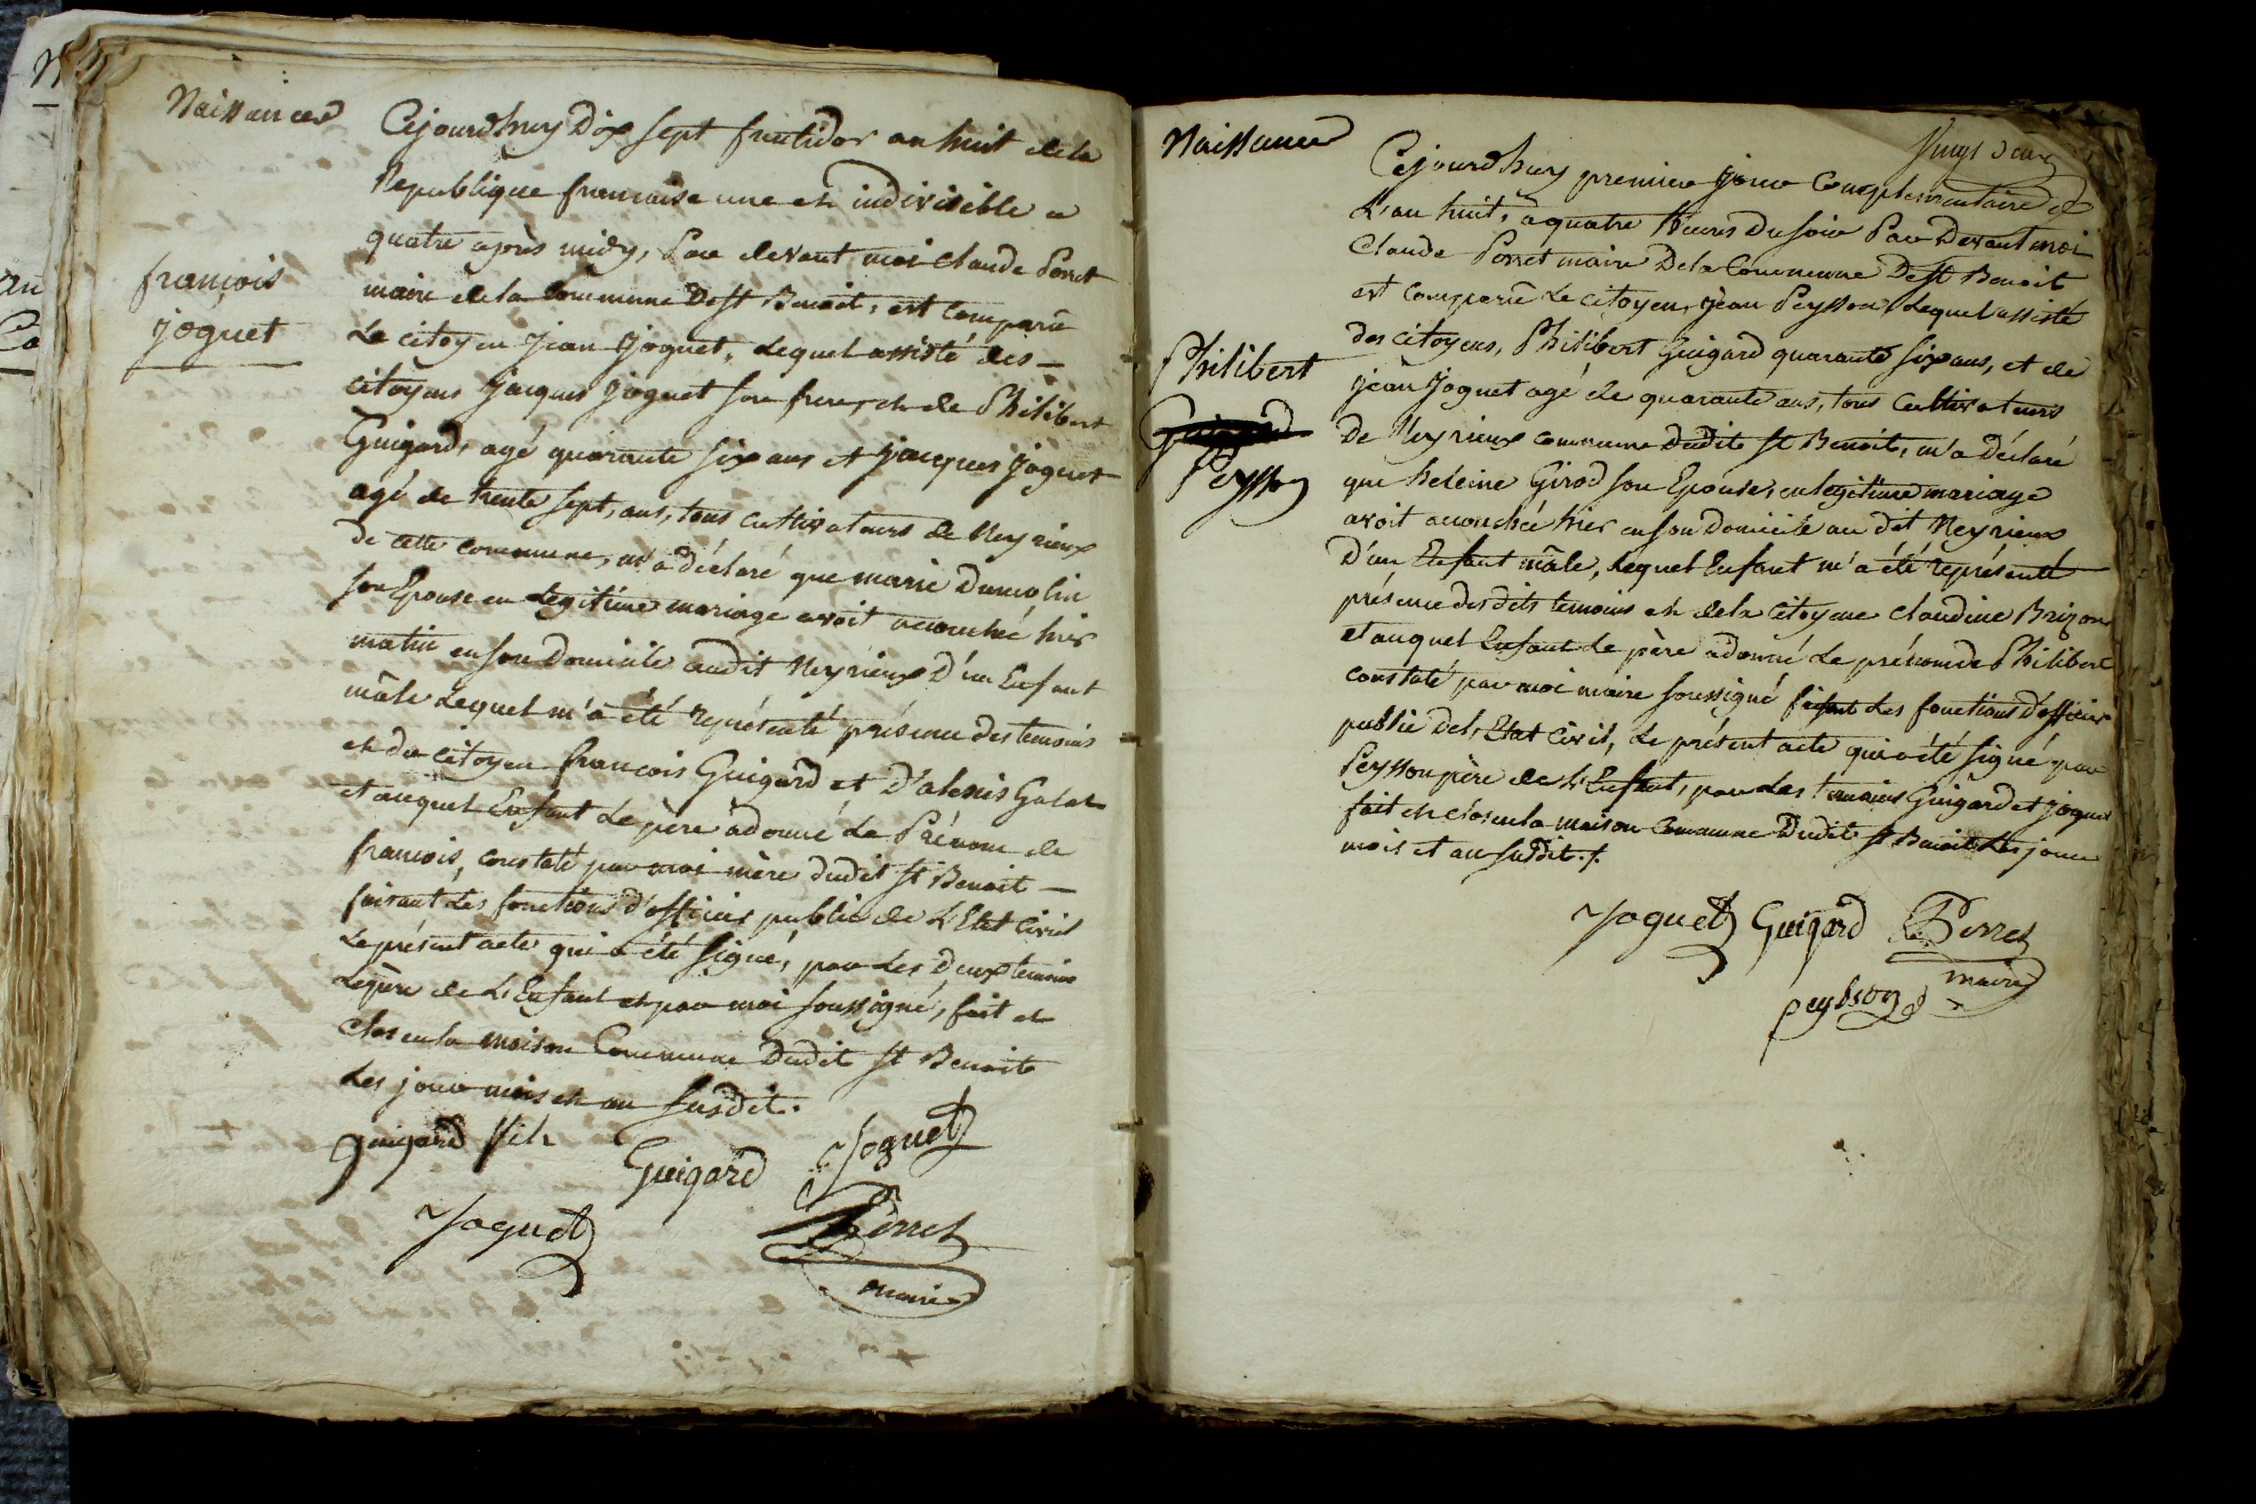 Naissances
françois
joguet
Cejourdhuy Dix sept fructidor an huit dela
Republique francaise une et indivisible a
quatre après midy, Par devant moi Claude Porret
maire dela Commune De St Benoit, est Comparü
Le citoyen Jean Joguet, Lequel assisté des —
citoyens Jacques Joguet son frere, et de Philibert
Guigard, agé quarante six ans et jacques joguet
agé de trente sept, ans, tous cultivateurs de Neyrieux
de cette commune, m'a déclaré que marie Dumolin
son Epouse en Legitime mariage avoit accouchée hier
matin en son Domicile audit Neyrieux D'un Enfant
mâle Lequel m'a été représenté présence des temoins
et du citoyen francois Guigard et D'alexis Galat
et auquel Enfant Le père a donné Le Prénom de
francois, constaté par moi mère dudit St Benoit —
faisant Les fonctions d'officier public de L'Etat Civil
Le présent acte qui a été signé, par Les Deux temoins
Le père de L'Enfant et par moi soussigné, fait et
Clos en la maison Commune Dudit St Benoit
Les jour mois et an susdit.
guigard fils
Guigard
Joguet
Joguet
Porret
maire
Naissance
Philibert
Guigard
Peysson
Vingt Deux
Cejourdhuy premier jour Complementaire de
L'an huit, a quatre heures Du soir Par Devant moi
Claude Porret maire De la Commune De St Benoit
est Comparü Le citoyen, Jean Peysson, Lequel assisté
des citoyens, Philibert Guigard quarante six ans, et de
jean Joguet agé de quarante ans, tous Cultivateurs
De Neyrieux commune Dudit St Benoit, m'a déclaré
que heleine Girod son Epouse, en legitime mariage
avoit accouchée hier en son Domicile au dit Neyrieux
D'un Enfant mâle, Lequel Enfant m'a été représenté
présence des dits temoins et dela citoyene Claudine Brizon
et auquel Enfant Le père a donné Le prénom de Philibert
constaté par moi maire soussigné faisant Les fonctions d'officier
public de L'Etat civil, Le présent acte qui a été signé par
Peysson père de L'Enfant, par Les temoins Guigard et Joguet
fait et clos en la maison Commune Dudit St Benoit Les jour
mois et an susdit ./.
Joguet Guigard Porret
maire
peysson